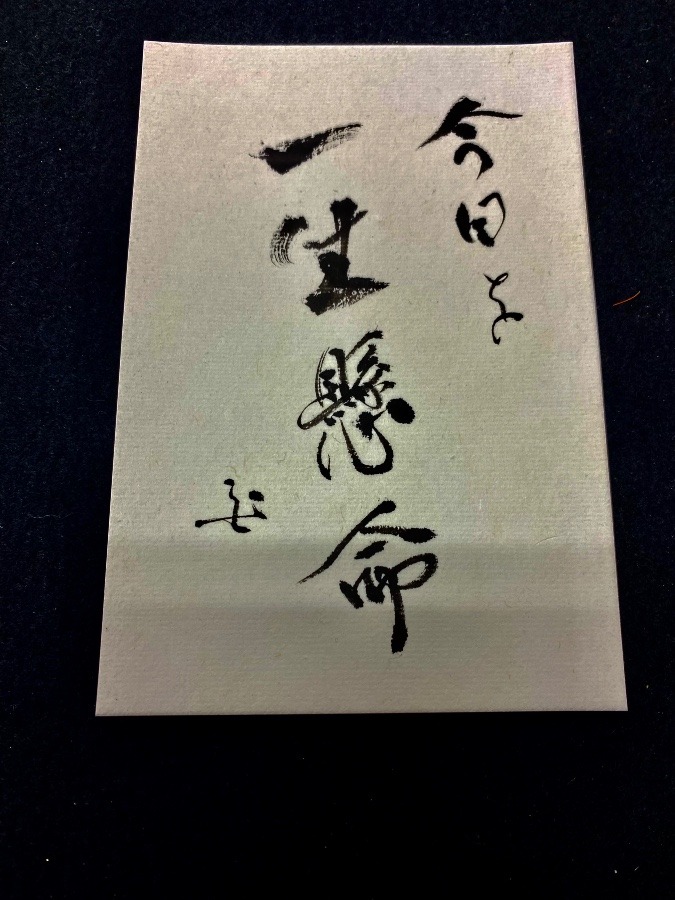 今日を
一生懸命